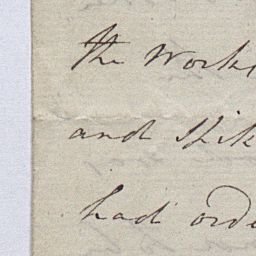 the Work
and
had orde